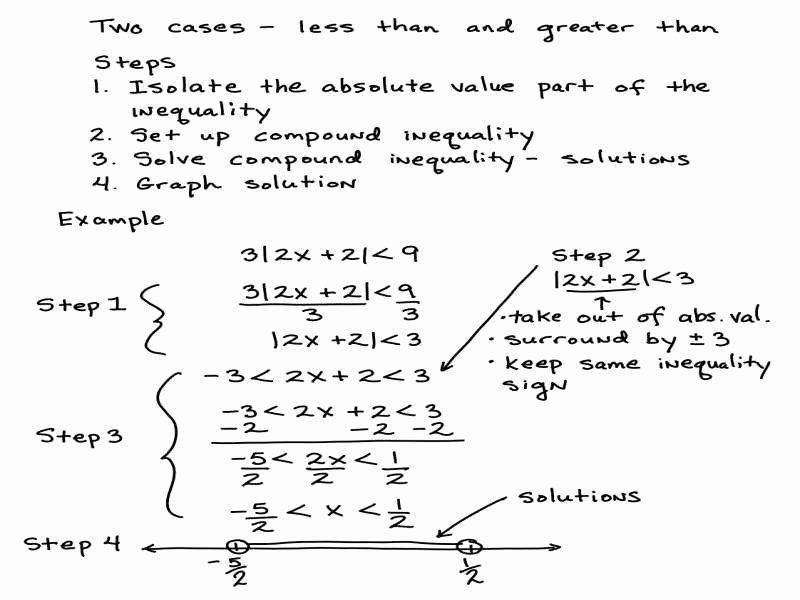 Two cases – less than and greater than
Steps
1. Isolate the absolute value part of the
inequality
2. Set up compound inequality
3. Solve compound inequality – solutions
4. Graph solution
Example
3|2x + 2| < 9
Step 1
3|2x + 2| < 9
3 3
|2x + 2| < 3
Step 2
|2x + 2| < 3
↑
• take out of abs. val.
• surround by ± 3
• keep same inequality
sign
-3 < 2x + 2 < 3
Step 3
-3 < 2x + 2 < 3
-2 -2 -2
-5/2 < 2x/2 < 1/2
-5/2 < x < 1/2
solutions
Step 4
-5/2 1/2